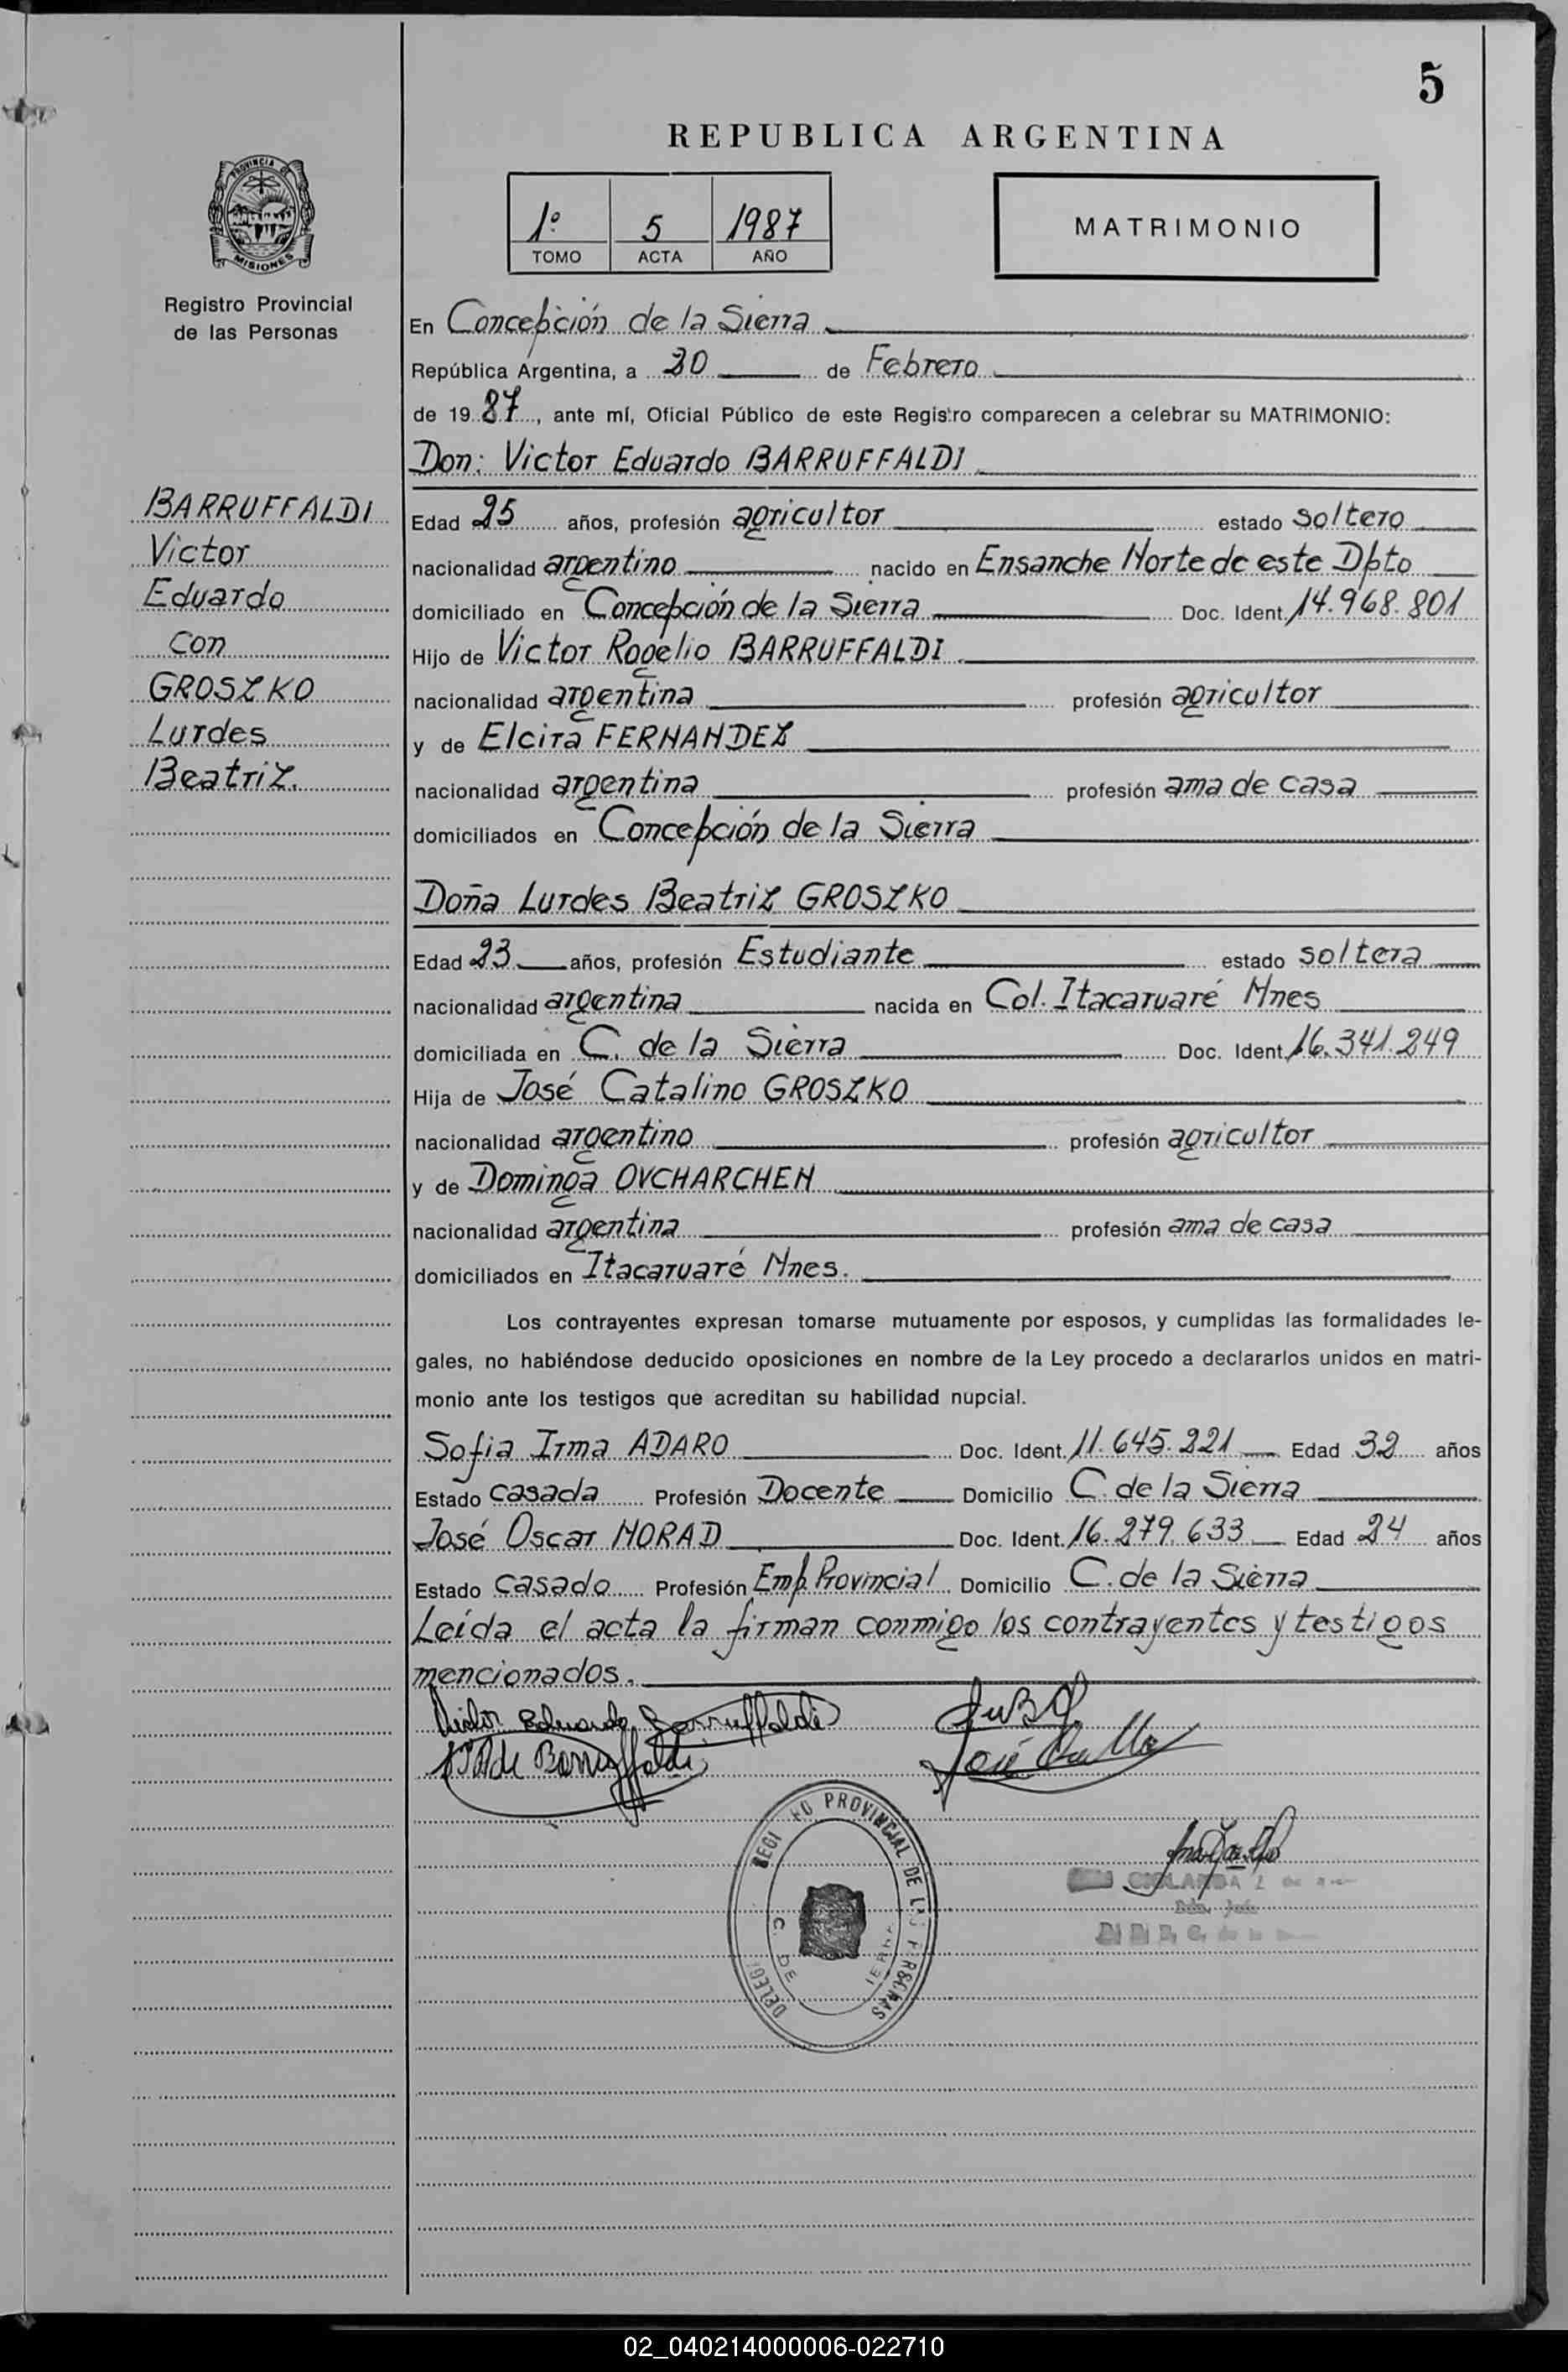 5
REPUBLICA ARGENTINA
PROVINCIA DE
MISIONES
Registro Provincial
de las Personas
1º 5 1987
TOMO ACTA AÑO
MATRIMONIO
En Concepción de la Sierra
República Argentina, a 20 de Febrero
de 1987, ante mí, Oficial Público de este Registro comparecen a celebrar su MATRIMONIO:
Don: Victor Eduardo BARRUFFALDI
BARRUFFALDI
Victor
Eduardo
con
GROSZKO
Lurdes
Beatriz.
Edad 25 años, profesión agricultor estado soltero
nacionalidad argentino nacido en Ensanche Norte de este Dpto
domiciliado en Concepción de la Sierra Doc. Ident. 14.968.801
Hijo de Victor Rogelio BARRUFFALDI
nacionalidad argentina profesión agricultor
y de Elcira FERNANDEZ
nacionalidad argentina profesión ama de casa
domiciliados en Concepción de la Sierra
Doña Lurdes Beatriz GROSZKO
Edad 23 años, profesión Estudiante estado soltera
nacionalidad argentina nacida en Col. Itacaruaré Mnes
domiciliada en C. de la Sierra Doc. Ident. 16.341.249
Hija de José Catalino GROSZKO
nacionalidad argentino profesión agricultor
y de Dominga OVCHARCHEN
nacionalidad argentina profesión ama de casa
domiciliados en Itacaruaré Mnes.
Los contrayentes expresan tomarse mutuamente por esposos, y cumplidas las formalidades le-
gales, no habiéndose deducido oposiciones en nombre de la Ley procedo a declararlos unidos en matri-
monio ante los testigos que acreditan su habilidad nupcial.
Sofia Irma ADARO Doc. Ident. 11.645.221 Edad 32 años
Estado casada Profesión Docente Domicilio C. de la Sierra
José Oscar MORAD Doc. Ident. 16.279.633 Edad 24 años
Estado casado Profesión Emp. Provincial Domicilio C. de la Sierra
Leída el acta la firman conmigo los contrayentes y testigos
mencionados.
Victor Eduardo Barruffaldi
de Barruffaldi José
REGI RO PROVINCIAL DE LAS PERSONAS
DELEG C. DE IERRA
02_040214000006-022710